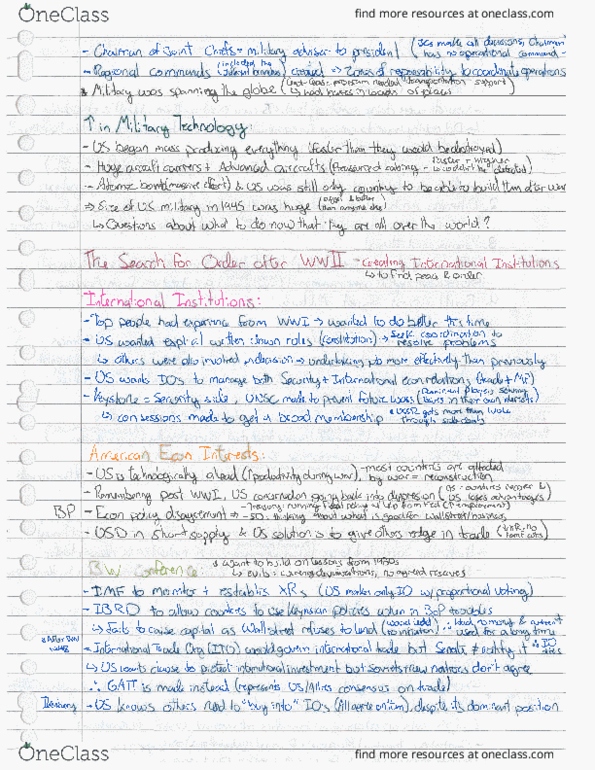 OneClass
find more resources at oneclass.com
- Chairman of Joint Chiefs = Military advisor to president (JCs make all decisions, Chairman
has no operational command
- Regional commands (included the different branches) created => zones of responsibility to coordinate operations
Military was spanning the globe (transportation support)
↳ had bases in of places
↑ in Military Technology:
- US began mass producing everything (faster than they would be destroyed)
- Huge aircraft carriers + Advanced aircrafts (Pressurized cabins - faster + higher
couldn't be detected)
- Atomic bomb (massive effort) & US was still only country to be able to build them after war
=> Size of US military in 1945 was huge (bigger & better than anyone else)
↳ Questions about what to do now that they are all over the world?
The Search for Order after WWII - creating International Institutions
↳ to find peace & order
International Institutions:
- Top people had experience from WWI → wanted to do better this time
- US wanted explicit written down rules (constitution) → seek coordination to
resolve problems
↳ others were also involved in decision → undertaking job more effectively than previously
- US wants IOs to manage both Security + International econ relations (trade +
- Keystone = Security side, UNSC made to prevent future wars (
in their own interests)
↳ concessions made to get a broad membership • USSR gets more than 1 vote
through side deals
American Econ Interests:
- US is technologically ahead (↑ productivity during war), - most countries are affected
by war = reconstruction
- Remembering post WWI, US concerned on going back into depression (
US loses advantages)
BP - Econ policy disagreement → - Treasury: running
- SD: thinking about what is good for Wall Street/business
- USD in short supply & US solution is to give others edge in trade
BW Conference: * Want to build on lessons from 1930s
↳ evils: currency devaluations, no agreed reserves
- IMF to monitor + establish XRs (US makes only IO w/ proportional voting)
- IBRD to allow countries to use Keynesian policies when in BoP troubles
↳ fails to raise capital as Wall Street refuses to lend ∴ Had no money & wasn't
used for a long time
- International Trade Org (ITO) would govern international trade but Senate ≠ ratify it
↳ US wants clause to protect international investment but new nations don't agree
∴ GATT is made instead (represents US/Allies consensus on trade)
- US knows others need to "buy into" IOs (All agree on them), despite its dominant position
OneClass
find more resources at oneclass.com